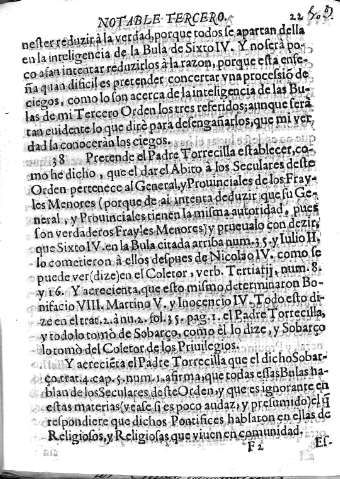 NOTABLE TERCERO. 22
nester reduzir à la verdad, porque todos se apartan della
en la inteligencia de la Bula de Sixto IV. Y no serà po-
co assan intentar reduzirlos à la razon, porque esta ense-
ña quan dificil es pretender concertar vna processiõ de
ciegos, como lo son acerca de la inteligencia de las Bu-
las de mi Tercero Orden los tres referidos; aunque serà
tan euidente lo que dirè para desengañarlos, que mi ver-
dad la conoceràn los ciegos.
38 Pretende el Padre Torrecilla establecer, co-
mo he dicho, que el dar el Abito à los Seculares deste
Orden pertenece al General, y Prouinciales de los Fray-
les Menores (porque de aì intenta deduzir que su Ge-
neral, y Prouinciales tienen la misma autoridad, pues
son verdaderos Frayles Menores) y prueualo con dezir,
que Sixto IV. en la Bula citada arriba num. 35. y Iulio II,
lo cometieron à ellos despues de Nicolao IV. como se
puede ver (dize) en el Coletor, verb. Tertiarij, num. 8.
y 16. Y acrecienta, que esto mismo determinaron Bo-
nifacio VIII. Martino V. y Inocencio IV. Todo esto di-
ze en el trat. 2. à nu. 2. fol. 35. pag. 1. el Padre Torrecilla,
y todo lo tomò de Sobarço, como èl lo dize, y Sobarço
lo tomò del Coletor de los Priuilegios.
Y acreciẽta el Padre Torrecilla que el dicho Sobar-
ço, trat. 4. cap. 5. num. 1. afirma, que todas essas Bulas ha-
blan de los Seculares deste Orden, y que es ignorante en
estas materias (vease si es poco audaz, y presumido) el q̃
respondiere que dichos Pontifices hablaron en ellas de
Religiosos, y Religiosas que viuen en comunidad.
F 2 Es-